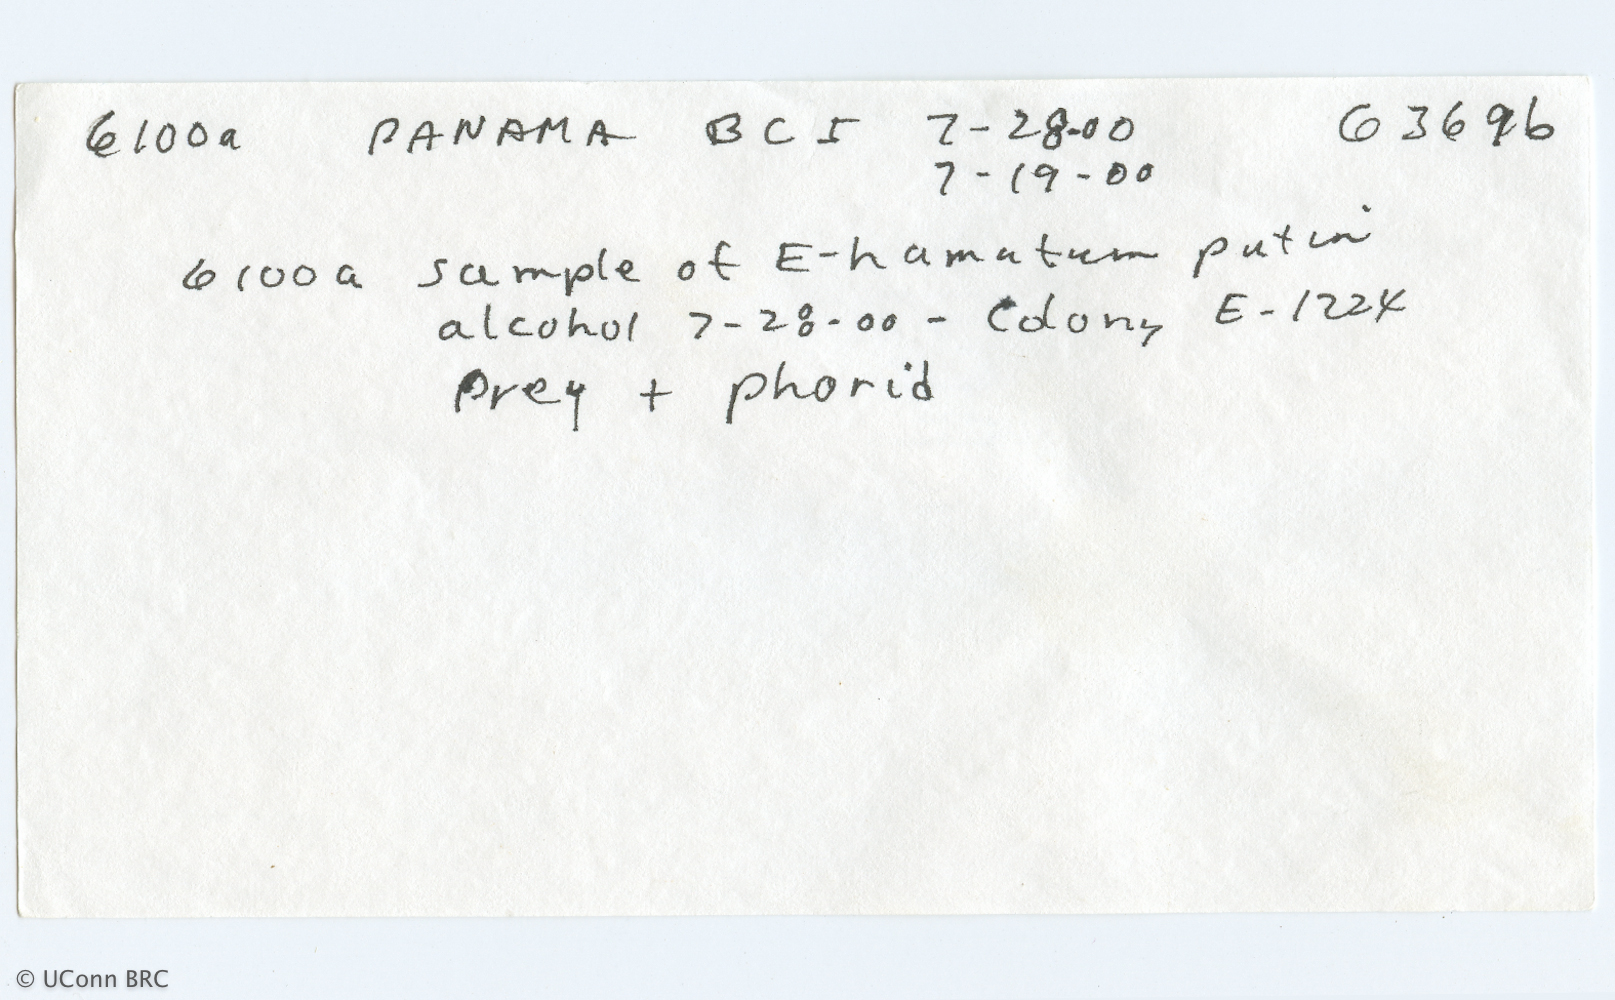 6100a PANAMA BCI 7-28-00 G3696
7-19-00
6100a sample of E-hamatum put in
alcohol 7-28-00 - Colony E-1224
Prey + phorid
© UConn BRC